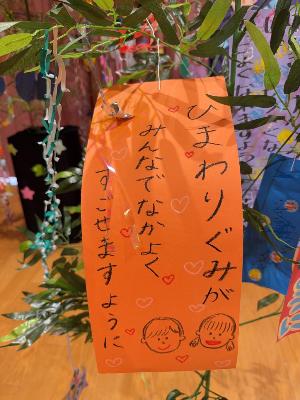 ひまわりぐみが
みんなでなかよく
すごせますように